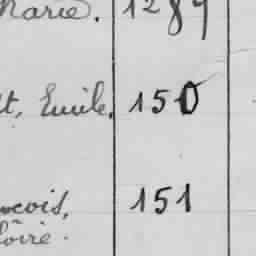 Marie. 1289
t, Emile. 150
cois, 151
loire.